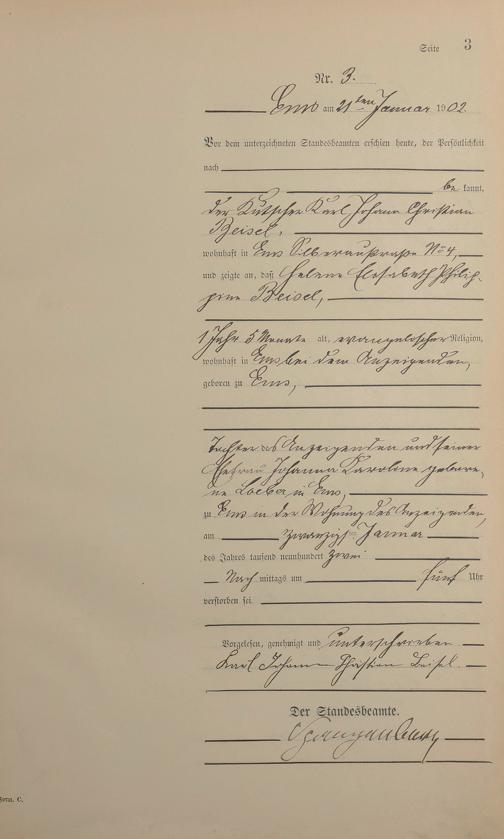 Seite 3
Nr. 3.
Ems am 21ten Januar 1902
Vor dem unterzeichneten Standesbeamten erschien heute, der Persönlichkeit
nach
be kannt,
der Kutscher Karl Johann Christian
Beisel,
wohnhaft in Ems Silberaustraße No 4,
und zeigte an, daß Helene Elisabeth Philip-
pine Beisel,
1 Jahr 5 Monate alt, evangelischer Religion,
wohnhaft in Ems bei dem Anzeigenden,
geboren zu Ems,
Tochter des Anzeigenden und seiner
Ehefrau Johanna Karoline gebore-
ne in Ems,
zu Ems in der Wohnung des Anzeigenden,
am zwanzigsten Januar
des Jahres tausend neunhundert zwei
Nach mittags um fünf Uhr
verstorben sei.
Vorgelesen, genehmigt und unterschrieben
Karl Johann Christian Beisel.
Der Standesbeamte.
Form. C.